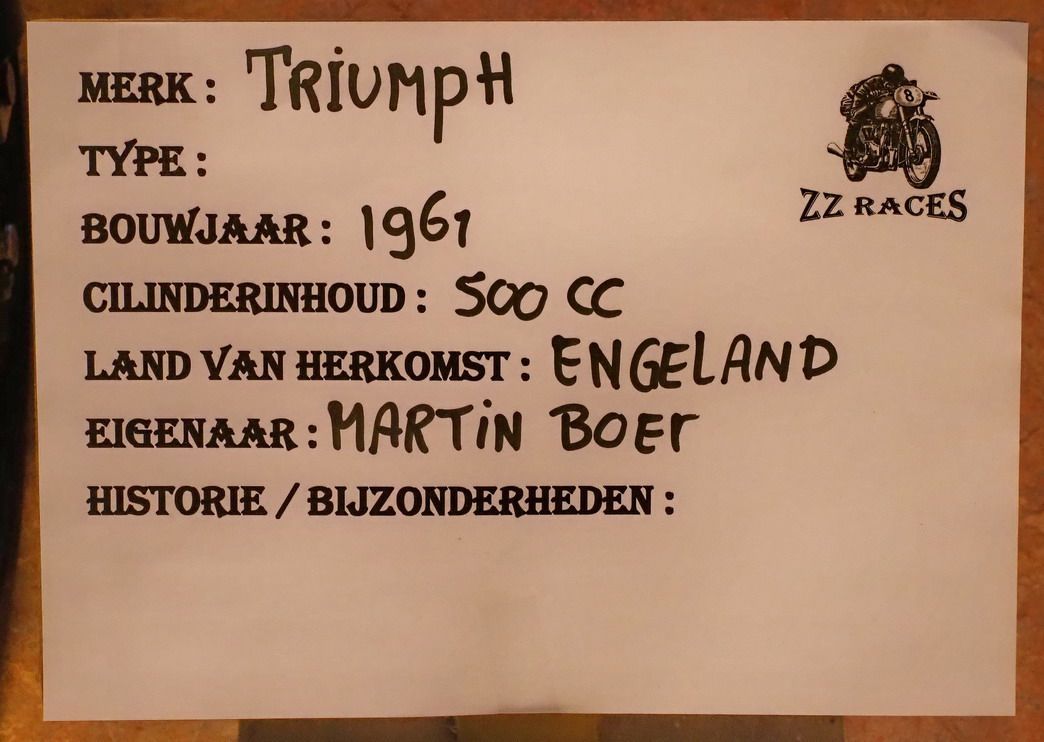 MERK : TRiUMpH
TYPE :
BOUWJAAR : 1961
CILINDERINHOUD : 500 CC
LAND VAN HERKOMST : ENGELAND
EIGENAAR : MARTiN BOEr
HISTORIE / BIJZONDERHEDEN :
8
ZZ RACES